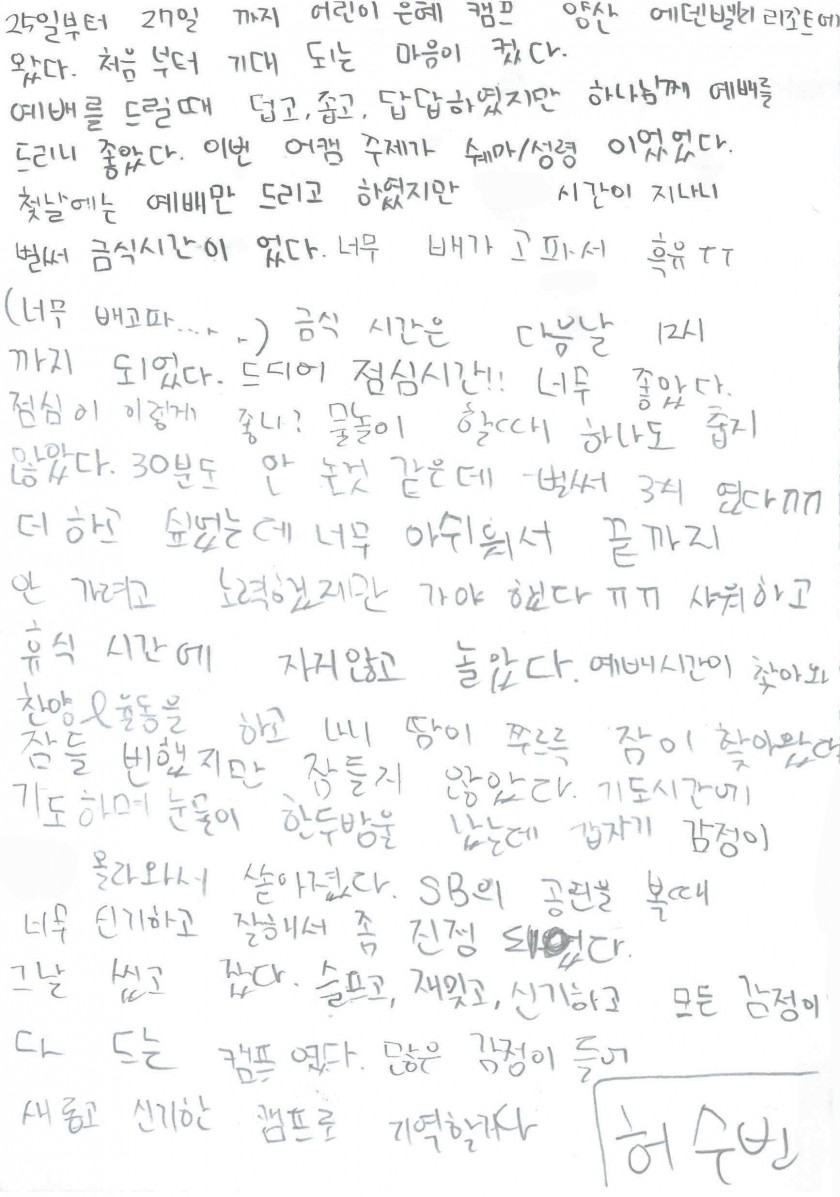 25일부터 27일 까지 어린이 은혜 캠프 양산 에덴벨리 리조트에
왔다. 처음 부터 기대 되는 마음이 컸다.
예배를 드릴때 덥고, 좁고, 답답하였지만 하나님께 예배를
드리니 좋았다. 이번 어캠 주제가 쉐마/성령 이었었다.
첫날에는 예배만 드리고 하였지만 시간이 지나니
벌써 금식시간이 었다. 너무 배가 고파서 흑유 ㅜㅜ
(너무 배고파.....) 금식 시간은 다음날 12시
까지 되었다. 드디어 점심시간!! 너무 좋았다.
점심이 이렇게 좋니? 물놀이 할때 하나도 춥지
않았다. 30분도 안 논것 같은데 벌써 3시 였다ㅠㅠ
더 하고 싶었는데 너무 아쉬워서 끝까지
안 가려고 노력했지만 가야 했다 ㅠㅠ 샤워하고
휴식 시간에 자지않고 놀았다. 예배시간이 찾아와
찬양&율동을 하고 나니 땀이 쭈르륵 잠이 찾아왔다
잠들 번했지만 잠들지 않았다. 기도시간에
기도하며 눈물이 한두방울 났는데 갑자기 감정이
몰라와서 쏟아졌다. SB의 공연을 볼때
너무 신기하고 잘해서 좀 진정 되었다.
그날 씼고 잤다. 슬프고, 재밌고, 신기하고 모든 감정이
다 드는 캠프 였다. 많은 감정이 들어
새롭고 신기한 캠프로 기억할거다
허수빈